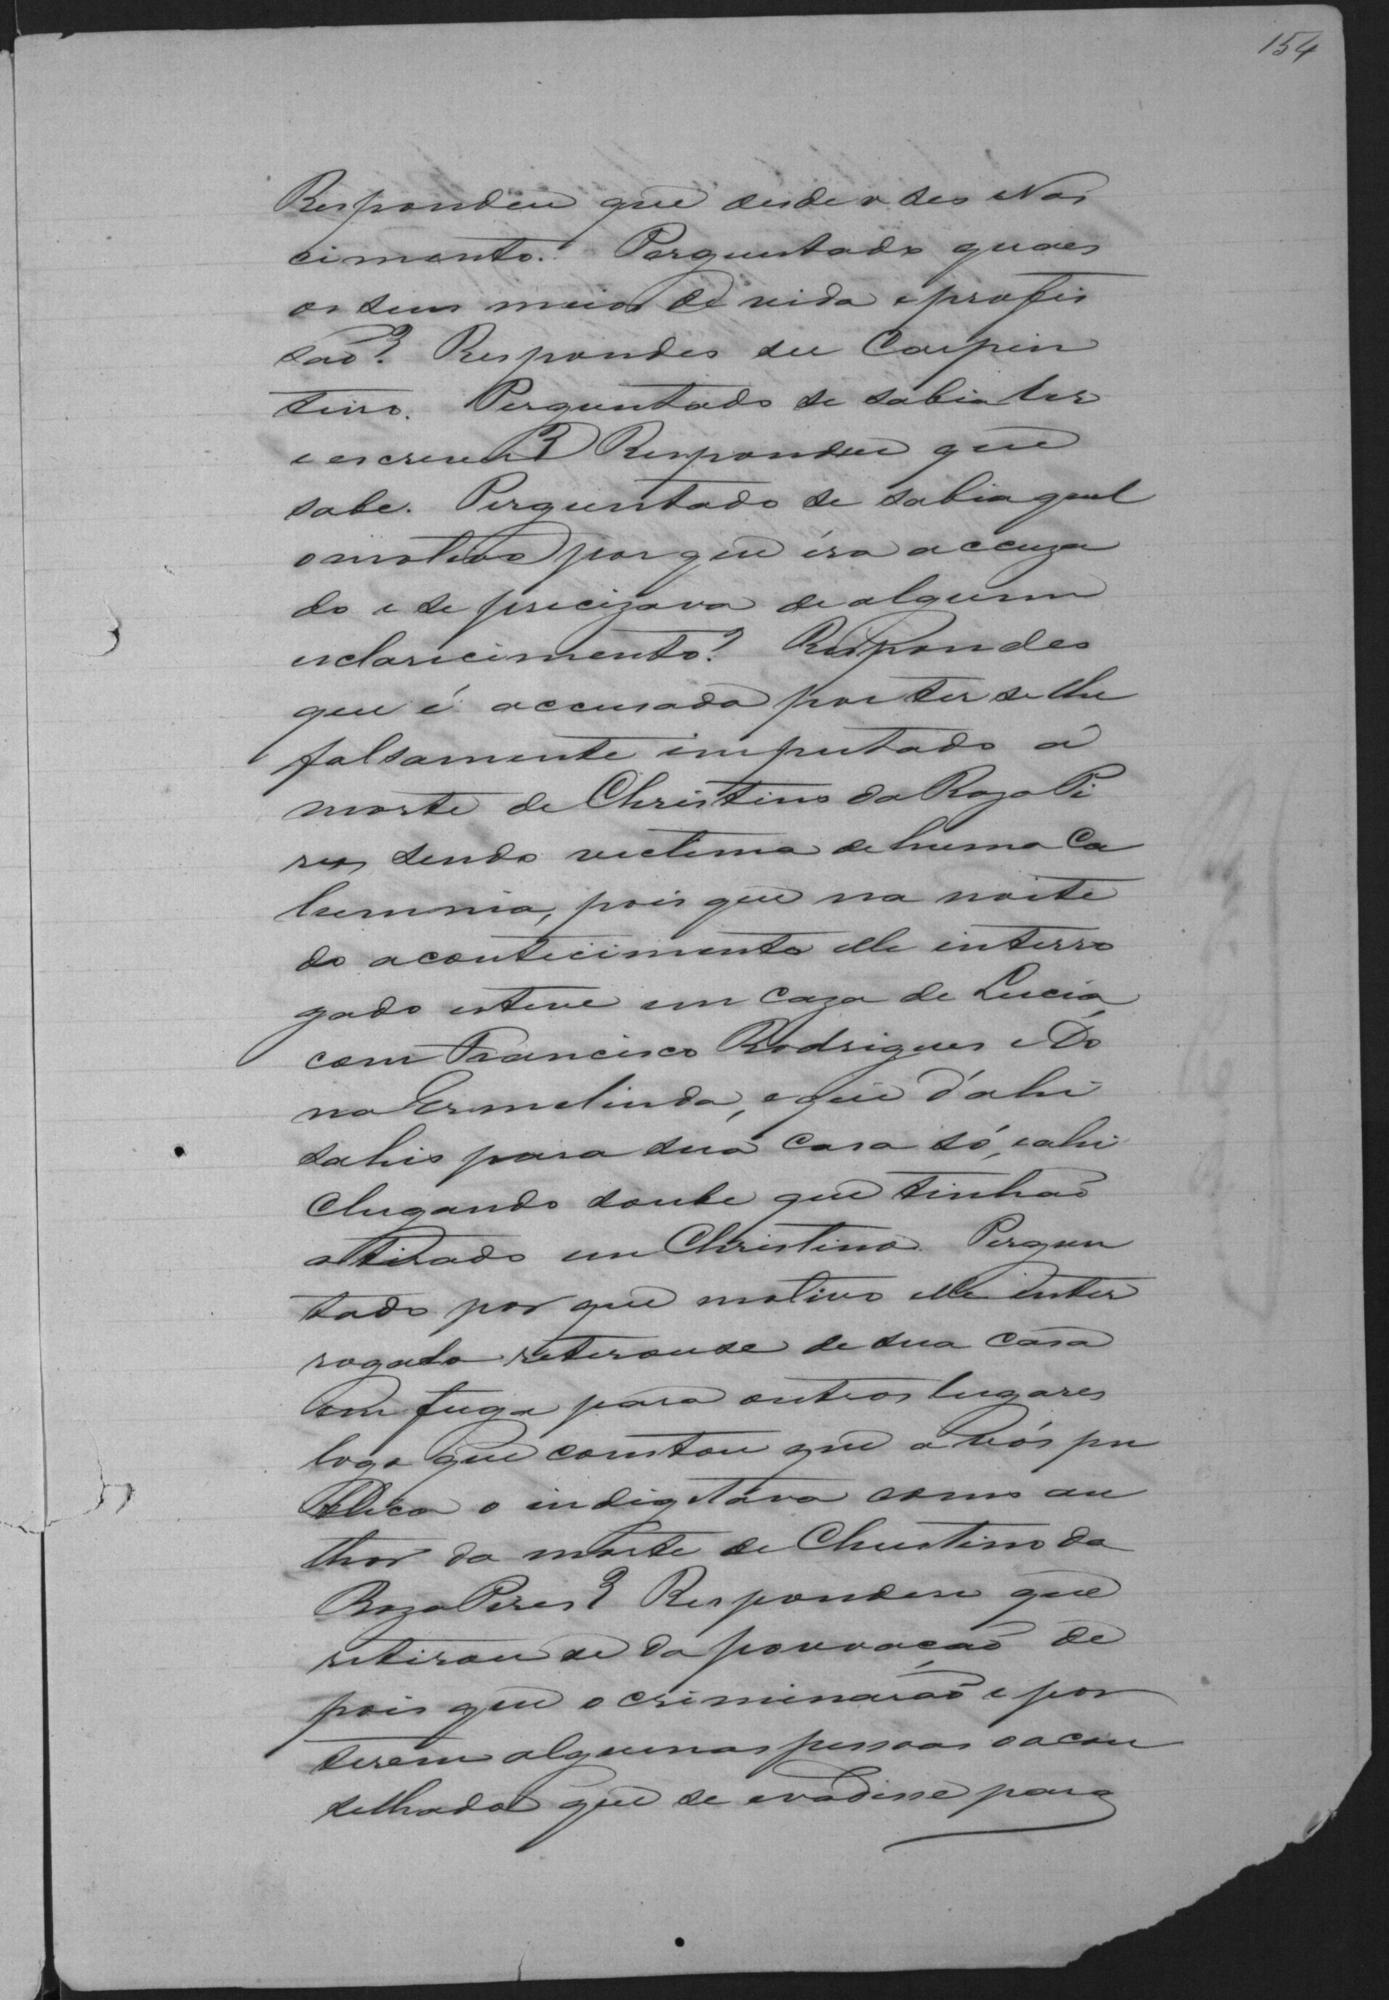 154
Respondeu que desde o seo Nas
cimento. Perguntado quaes
os seus meios de vida e profis
são? Respondeo ser Carpin
teiro. Perguntado se sabia ler
e escrever? Respondeu que
sabe. Perguntado se sabia qual
o motivo por que éra accuza
do e se precizava de algum
esclarecimento? Respondeo
que é accusado por ter se lhe
falsamente imputado a
morte de Christino da Roza Pi
res sendo victima de huma Ca
lumnia, pois que na noite
do acontecimento elle interro
gado esteve em caza de Lucia
com Francisco Rodrigues e Do
na Ermelinda, e que d'ahi
sahio para sua casa só, e ahi
chegando soube que tinhão
atirado em Christino. Pergun
tado por que motivo elle inter
rogado retirouse de sua casa
em fuga para outros lugares
logo que constou que a vós pu
blica o indigitava como au
thor da morte de Christino da
Roza Pires? Respondeu que
retirou se da povoação de
pois que o criminarão e por
terem algumas pessoas o acon
selhado que se evadisse para